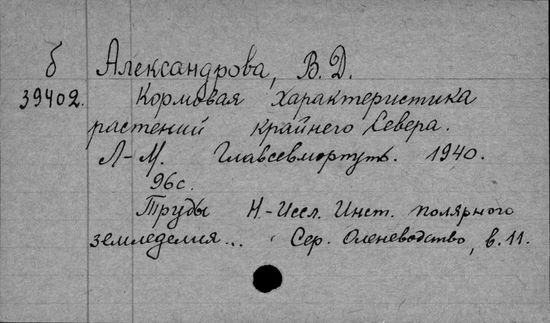 б Александрова, В. Д.
39402. Кормовая характеристика
растений крайнего Севера.
Л-М. Главсевморпуть. 1940.
96с.
Труды Н.-Иссл. Инст. полярного
земледелия... Сер. Оленеводство, в. 11.